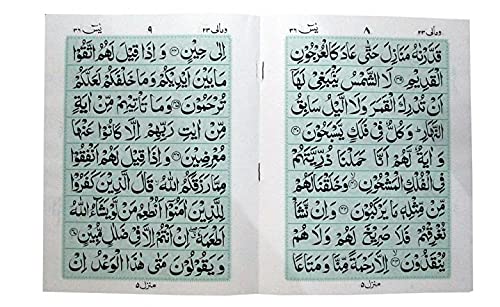 ومالی ٢٣ ٨ یٰسٓ ٣٦
قَدَّرْنٰهُ مَنَازِلَ حَتّٰى عَادَ كَالْعُرْجُوْنِ
الْقَدِيْمِ ۝٣٩ لَا الشَّمْسُ يَنْۢبَغِيْ لَهَآ
اَنْ تُدْرِكَ الْقَمَرَ وَلَا الَّيْلُ سَابِقُ
النَّهَارِ ؕ وَكُلٌّ فِيْ فَلَكٍ يَّسْبَحُوْنَ ۝٤٠
وَاٰيَةٌ لَّهُمْ اَنَّا حَمَلْنَا ذُرِّيَّتَهُمْ
فِي الْفُلْكِ الْمَشْحُوْنِ ۝٤١ وَخَلَقْنَا لَهُمْ
مِّنْ مِّثْلِهٖ مَا يَرْكَبُوْنَ ۝٤٢ وَاِنْ نَّشَاْ
نُغْرِقْهُمْ فَلَا صَرِيْخَ لَهُمْ وَلَا هُمْ
يُنْقَذُوْنَ ۝٤٣ اِلَّا رَحْمَةً مِّنَّا وَمَتَاعًا
منزل ٥
ومالی ٢٣ ٩ یٰسٓ ٣٦
اِلٰى حِيْنٍ ۝٤٤ وَاِذَا قِيْلَ لَهُمُ اتَّقُوْا
مَا بَيْنَ اَيْدِيْكُمْ وَمَا خَلْفَكُمْ لَعَلَّكُمْ
تُرْحَمُوْنَ ۝٤٥ وَمَا تَاْتِيْهِمْ مِّنْ اٰيَةٍ
مِّنْ اٰيٰتِ رَبِّهِمْ اِلَّا كَانُوْا عَنْهَا
مُعْرِضِيْنَ ۝٤٦ وَاِذَا قِيْلَ لَهُمْ اَنْفِقُوْا
مِمَّا رَزَقَكُمُ اللّٰهُ ۙ قَالَ الَّذِيْنَ كَفَرُوْا
لِلَّذِيْنَ اٰمَنُوْٓا اَنُطْعِمُ مَنْ لَّوْ يَشَآءُ اللّٰهُ
اَطْعَمَهٗٓ ۖ اِنْ اَنْتُمْ اِلَّا فِيْ ضَلٰلٍ مُّبِيْنٍ ۝٤٧
وَيَقُوْلُوْنَ مَتٰى هٰذَا الْوَعْدُ اِنْ
منزل ٥